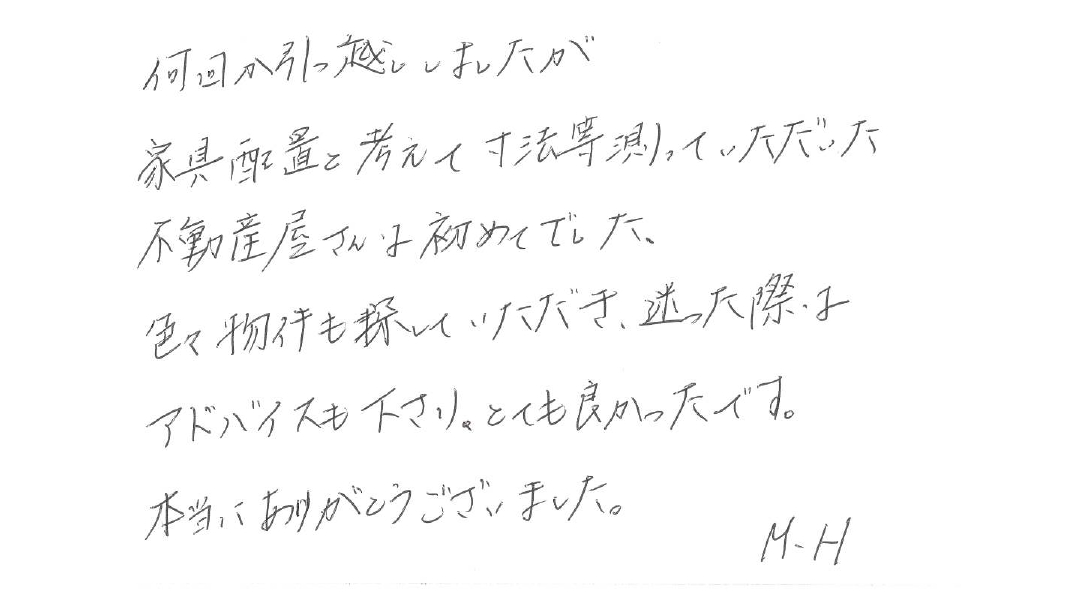 何回か引っ越ししましたが
家具配置と考えて寸法等測っていただいた
不動産屋さんは初めてでした、
色々物件も探していただき、迷った際は
アドバイスも下さり。とても良かったです。
本当にありがとうございました。
M-H